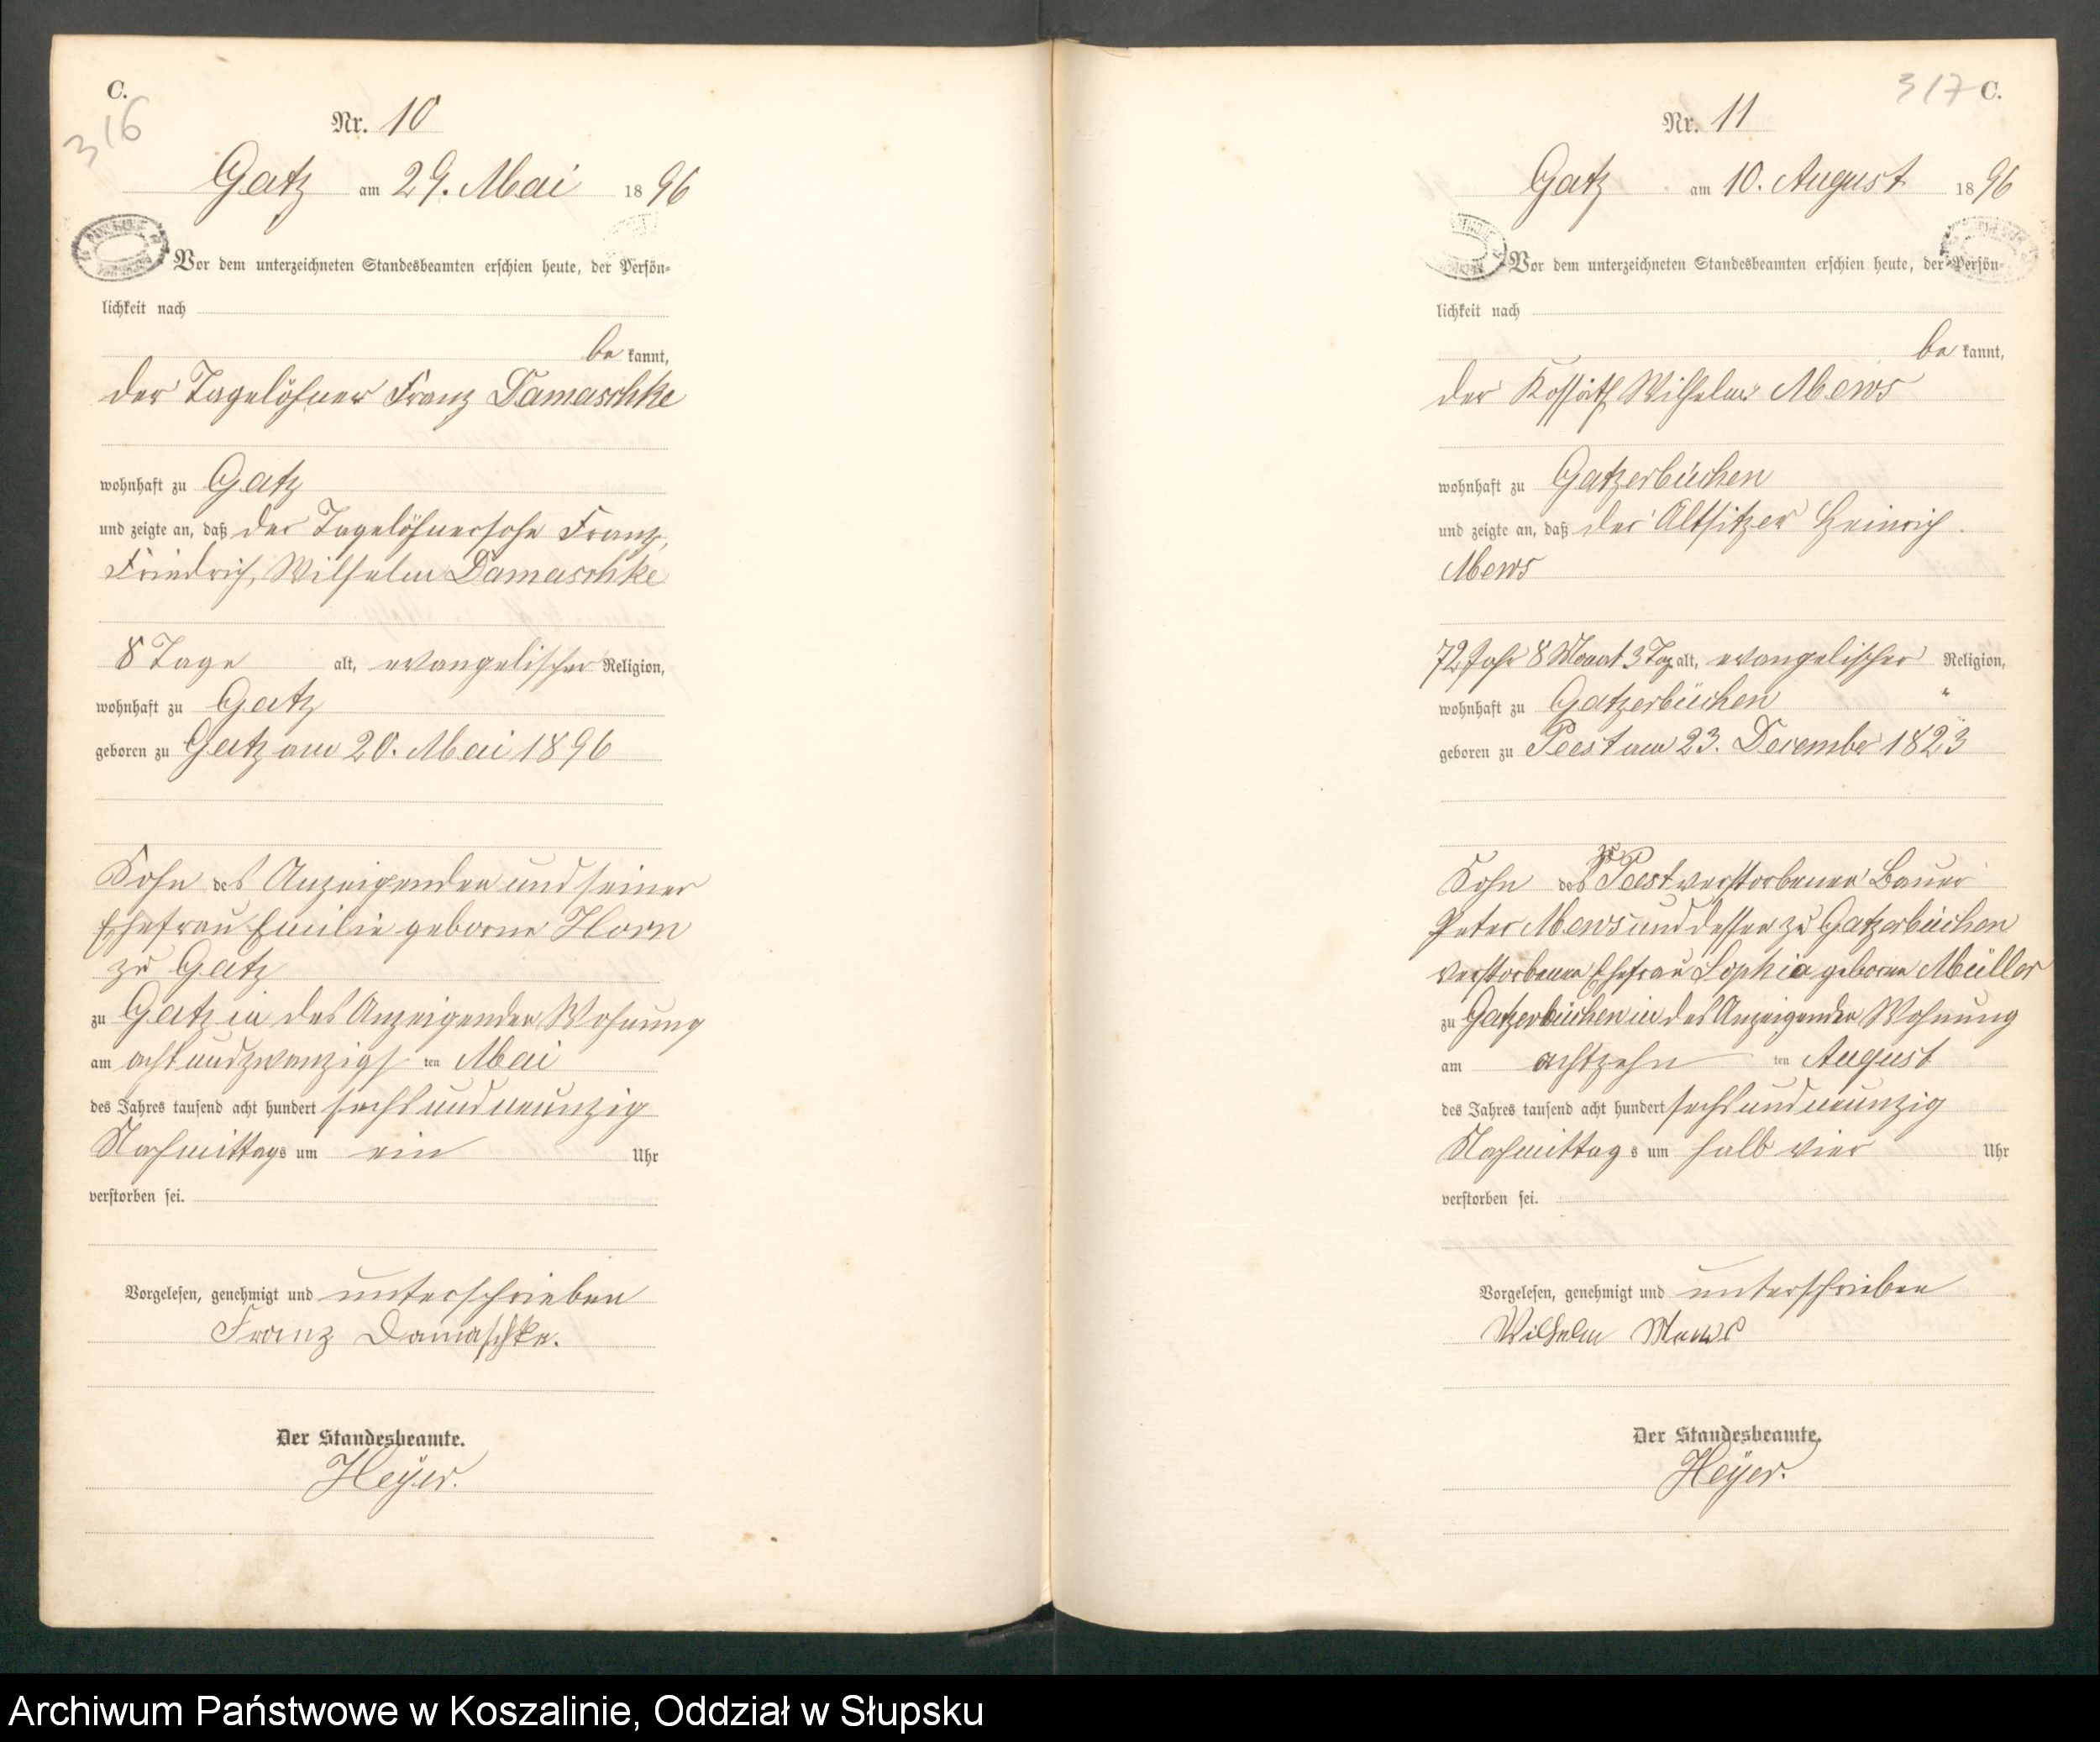 C.
316
Nr. 10
Gatz am 29. Mai 1896
Vor dem unterzeichneten Standesbeamten erschien heute, der Persön-
lichkeit nach
be kannt,
der Tagelöhner Franz Damaschke
wohnhaft zu Gatz
und zeigte an, daß der Tagelöhnersohn Franz,
Friedrich, Wilhelm Damaschke
8 Tage alt, evangelischer Religion,
wohnhaft zu Gatz
geboren zu Gatz am 20. Mai 1896
Sohn des Anzeigenden und seiner
Ehefrau Emilie geborne Horn
zu Gatz
zu Gatz in des Anzeigenden Wohnung
am acht und zwanzigs ten Mai
des Jahres tausend acht hundert sechs und neunzig
Nachmittags um ein Uhr
verstorben sei.
Vorgelesen, genehmigt und unterschrieben
Franz Damaschke.
Der Standesbeamte.
Heyer.
317 C.
Nr. 11
Gatz am 10. August 1896
Vor dem unterzeichneten Standesbeamten erschien heute, der Persön-
lichkeit nach
be kannt,
der Kossäth Wilhelm Mews
wohnhaft zu Gatzerbüchen
und zeigte an, daß der Altsitzer Heinrich
Mews
72 Jahr 8 Monat 3 Tag alt, evangelischer Religion,
wohnhaft zu Gatzerbüchen
geboren zu Peest am 23. December 1823
Sohn des zu Peest verstorbenen Bauer
Peter Mews und dessen zu Gatzerbüchen
verstorbenen Ehefrau Sophia geborne Müller
zu Gatzerbüchen in des Anzeigenden Wohnung
am achtzehn ten August
des Jahres tausend acht hundert sechs und neunzig
Nachmittags um halb vier Uhr
verstorben sei.
Vorgelesen, genehmigt und unterschrieben
Wilhelm Mews
Der Standesbeamte.
Heyer.
Archiwum Państwowe w Koszalinie, Oddział w Słupsku